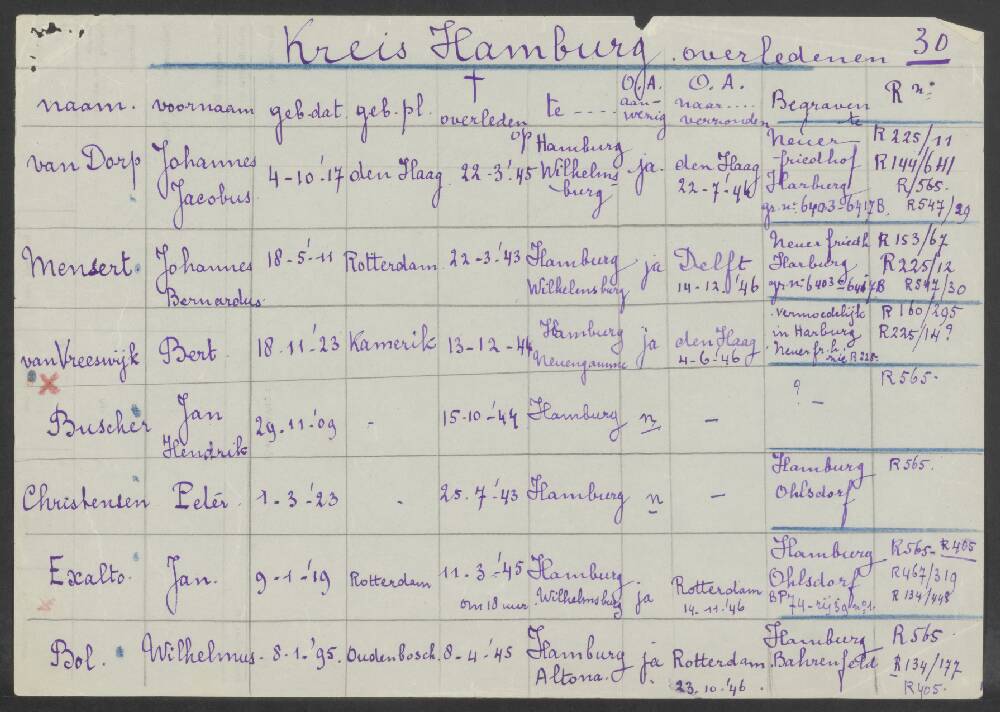 Kreis Hamburg. overledenen 30
naam. voornaam geb.dat. geb.pl. † overleden op te ---- O.A. aan-wezig O.A. naar.... verzonden Begraven te R nr.
van Dorp Johannes Jacobus. 4-10-'17 den Haag 22-3-'45 Hamburg Wilhelms-burg ja. den Haag 22-7-'46 Neuer friedhof Harburg R225/11 R144/641 R/565. R547/29
Mensert. Johannes Bernardus. 18-5-'11 Rotterdam. 22-3-'43 Hamburg Wilhelmsburg ja Delft 14-12.'46 Neuer friedh Harburg R153/67 R225/12 R547/30
van Vreeswijk Bert. 18-11-'23 Kamerik 13-12-'44 Hamburg Neuengamme ja den Haag 4-6-'46 vermoedelijk in Harburg R160/295 R225/14?
Buscher Jan Hendrik 29.11-'09 - 15-10-'44 Hamburg n. - ? - R565.
Christensen Petér. 1-3-'23 - 25.7-'43 Hamburg n - Hamburg Ohlsdorf R565.
Exalto. Jan. 9-1-'19 Rotterdam 11.3-'45 om 18 uur Hamburg Wilhelmsburg ja. Rotterdam 14-11-'46 Hamburg Ohlsdorf R565- R405 R467/319 R134/448
Bol. Wilhelmus 8-1-'95. Oudenbosch. 8-4-'45 Hamburg Altona. ja. Rotterdam. 23.10.'46. Hamburg Bahrenfeld R565 R134/177 R405.